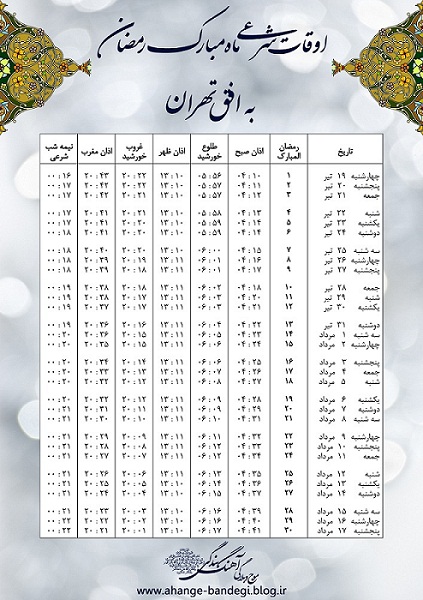 اوقات شرعی ماه مبارک رمضان
به افق تهران
تاریخ رمضان المبارک اذان صبح طلوع خورشید اذان ظهر غروب خورشید اذان مغرب نیمه شب شرعی
چهارشنبه ۱۹ تیر ۱ ۰۴:۱۰ ۰۵:۵۶ ۱۳:۱۰ ۲۰:۲۲ ۲۰:۴۳ ۰۰:۱۶
پنجشنبه ۲۰ تیر ۲ ۰۴:۱۱ ۰۵:۵۷ ۱۳:۱۰ ۲۰:۲۲ ۲۰:۴۲ ۰۰:۱۷
جمعه ۲۱ تیر ۳ ۰۴:۱۲ ۰۵:۵۷ ۱۳:۱۰ ۲۰:۲۱ ۲۰:۴۲ ۰۰:۱۷
شنبه ۲۲ تیر ۴ ۰۴:۱۳ ۰۵:۵۸ ۱۳:۱۰ ۲۰:۲۱ ۲۰:۴۱ ۰۰:۱۷
یکشنبه ۲۳ تیر ۵ ۰۴:۱۴ ۰۵:۵۹ ۱۳:۱۰ ۲۰:۲۰ ۲۰:۴۱ ۰۰:۱۷
دوشنبه ۲۴ تیر ۶ ۰۴:۱۴ ۰۵:۵۹ ۱۳:۱۰ ۲۰:۲۰ ۲۰:۴۱ ۰۰:۱۸
سه شنبه ۲۵ تیر ۷ ۰۴:۱۵ ۰۶:۰۰ ۱۳:۱۰ ۲۰:۲۰ ۲۰:۴۰ ۰۰:۱۸
چهارشنبه ۲۶ تیر ۸ ۰۴:۱۶ ۰۶:۰۱ ۱۳:۱۰ ۲۰:۱۹ ۲۰:۳۹ ۰۰:۱۸
پنجشنبه ۲۷ تیر ۹ ۰۴:۱۷ ۰۶:۰۱ ۱۳:۱۰ ۲۰:۱۸ ۲۰:۳۹ ۰۰:۱۸
جمعه ۲۸ تیر ۱۰ ۰۴:۱۸ ۰۶:۰۲ ۱۳:۱۱ ۲۰:۱۸ ۲۰:۳۸ ۰۰:۱۹
شنبه ۲۹ تیر ۱۱ ۰۴:۲۰ ۰۶:۰۳ ۱۳:۱۱ ۲۰:۱۷ ۲۰:۳۸ ۰۰:۱۹
یکشنبه ۳۰ تیر ۱۲ ۰۴:۲۱ ۰۶:۰۳ ۱۳:۱۱ ۲۰:۱۷ ۲۰:۳۷ ۰۰:۱۹
دوشنبه ۳۱ تیر ۱۳ ۰۴:۲۲ ۰۶:۰۴ ۱۳:۱۱ ۲۰:۱۶ ۲۰:۳۶ ۰۰:۱۹
سه شنبه ۱ مرداد ۱۴ ۰۴:۲۳ ۰۶:۰۵ ۱۳:۱۱ ۲۰:۱۵ ۲۰:۳۶ ۰۰:۲۰
چهارشنبه ۲ مرداد ۱۵ ۰۴:۲۴ ۰۶:۰۶ ۱۳:۱۱ ۲۰:۱۵ ۲۰:۳۵ ۰۰:۲۰
پنجشنبه ۳ مرداد ۱۶ ۰۴:۲۵ ۰۶:۰۶ ۱۳:۱۱ ۲۰:۱۴ ۲۰:۳۴ ۰۰:۲۰
جمعه ۴ مرداد ۱۷ ۰۴:۲۶ ۰۶:۰۷ ۱۳:۱۱ ۲۰:۱۳ ۲۰:۳۳ ۰۰:۲۰
شنبه ۵ مرداد ۱۸ ۰۴:۲۷ ۰۶:۰۸ ۱۳:۱۱ ۲۰:۱۲ ۲۰:۳۲ ۰۰:۲۰
یکشنبه ۶ مرداد ۱۹ ۰۴:۲۸ ۰۶:۰۹ ۱۳:۱۱ ۲۰:۱۲ ۲۰:۳۲ ۰۰:۲۱
دوشنبه ۷ مرداد ۲۰ ۰۴:۲۹ ۰۶:۰۹ ۱۳:۱۱ ۲۰:۱۱ ۲۰:۳۱ ۰۰:۲۱
سه شنبه ۸ مرداد ۲۱ ۰۴:۳۱ ۰۶:۱۰ ۱۳:۱۱ ۲۰:۱۰ ۲۰:۳۰ ۰۰:۲۱
چهارشنبه ۹ مرداد ۲۲ ۰۴:۳۲ ۰۶:۱۱ ۱۳:۱۱ ۲۰:۰۹ ۲۰:۲۹ ۰۰:۲۱
پنجشنبه ۱۰ مرداد ۲۳ ۰۴:۳۳ ۰۶:۱۲ ۱۳:۱۱ ۲۰:۰۸ ۲۰:۲۸ ۰۰:۲۱
جمعه ۱۱ مرداد ۲۴ ۰۴:۳۴ ۰۶:۱۳ ۱۳:۱۱ ۲۰:۰۷ ۲۰:۲۷ ۰۰:۲۱
شنبه ۱۲ مرداد ۲۵ ۰۴:۳۵ ۰۶:۱۳ ۱۳:۱۱ ۲۰:۰۶ ۲۰:۲۶ ۰۰:۲۱
یکشنبه ۱۳ مرداد ۲۶ ۰۴:۳۶ ۰۶:۱۴ ۱۳:۱۱ ۲۰:۰۵ ۲۰:۲۵ ۰۰:۲۱
دوشنبه ۱۴ مرداد ۲۷ ۰۴:۳۷ ۰۶:۱۵ ۱۳:۱۰ ۲۰:۰۴ ۲۰:۲۴ ۰۰:۲۱
سه شنبه ۱۵ مرداد ۲۸ ۰۴:۳۹ ۰۶:۱۶ ۱۳:۱۰ ۲۰:۰۳ ۲۰:۲۳ ۰۰:۲۱
چهارشنبه ۱۶ مرداد ۲۹ ۰۴:۴۰ ۰۶:۱۶ ۱۳:۱۰ ۲۰:۰۲ ۲۰:۲۲ ۰۰:۲۱
پنجشنبه ۱۷ مرداد ۳۰ ۰۴:۴۱ ۰۶:۱۷ ۱۳:۱۰ ۲۰:۰۱ ۲۰:۲۱ ۰۰:۲۲
آهنگ بندگی
www.ahange-bandegi.blog.ir